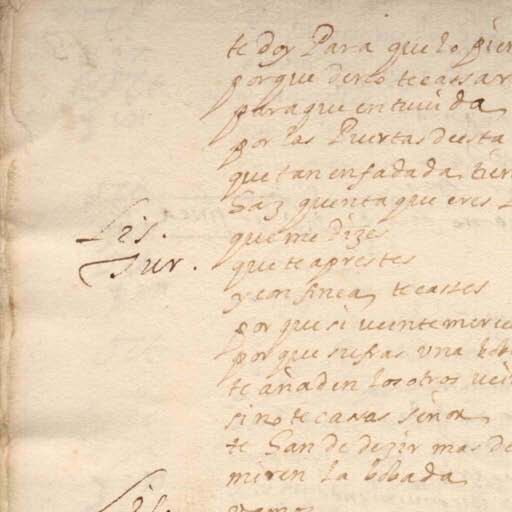 te doy Para que lo pien
porque deceo te cassar
para que en tu vida
por las Puertas de esta
que tan enfadada tien
haz quenta que eres
Lis. que me dizes
Tur. que te aprestes
y con finea te casses
por que si veinte merce
por que sufras una bob
te añaden los otros vein
si no te casas señor
te han de dezir mas de
miren la bobada
Lis. vamos